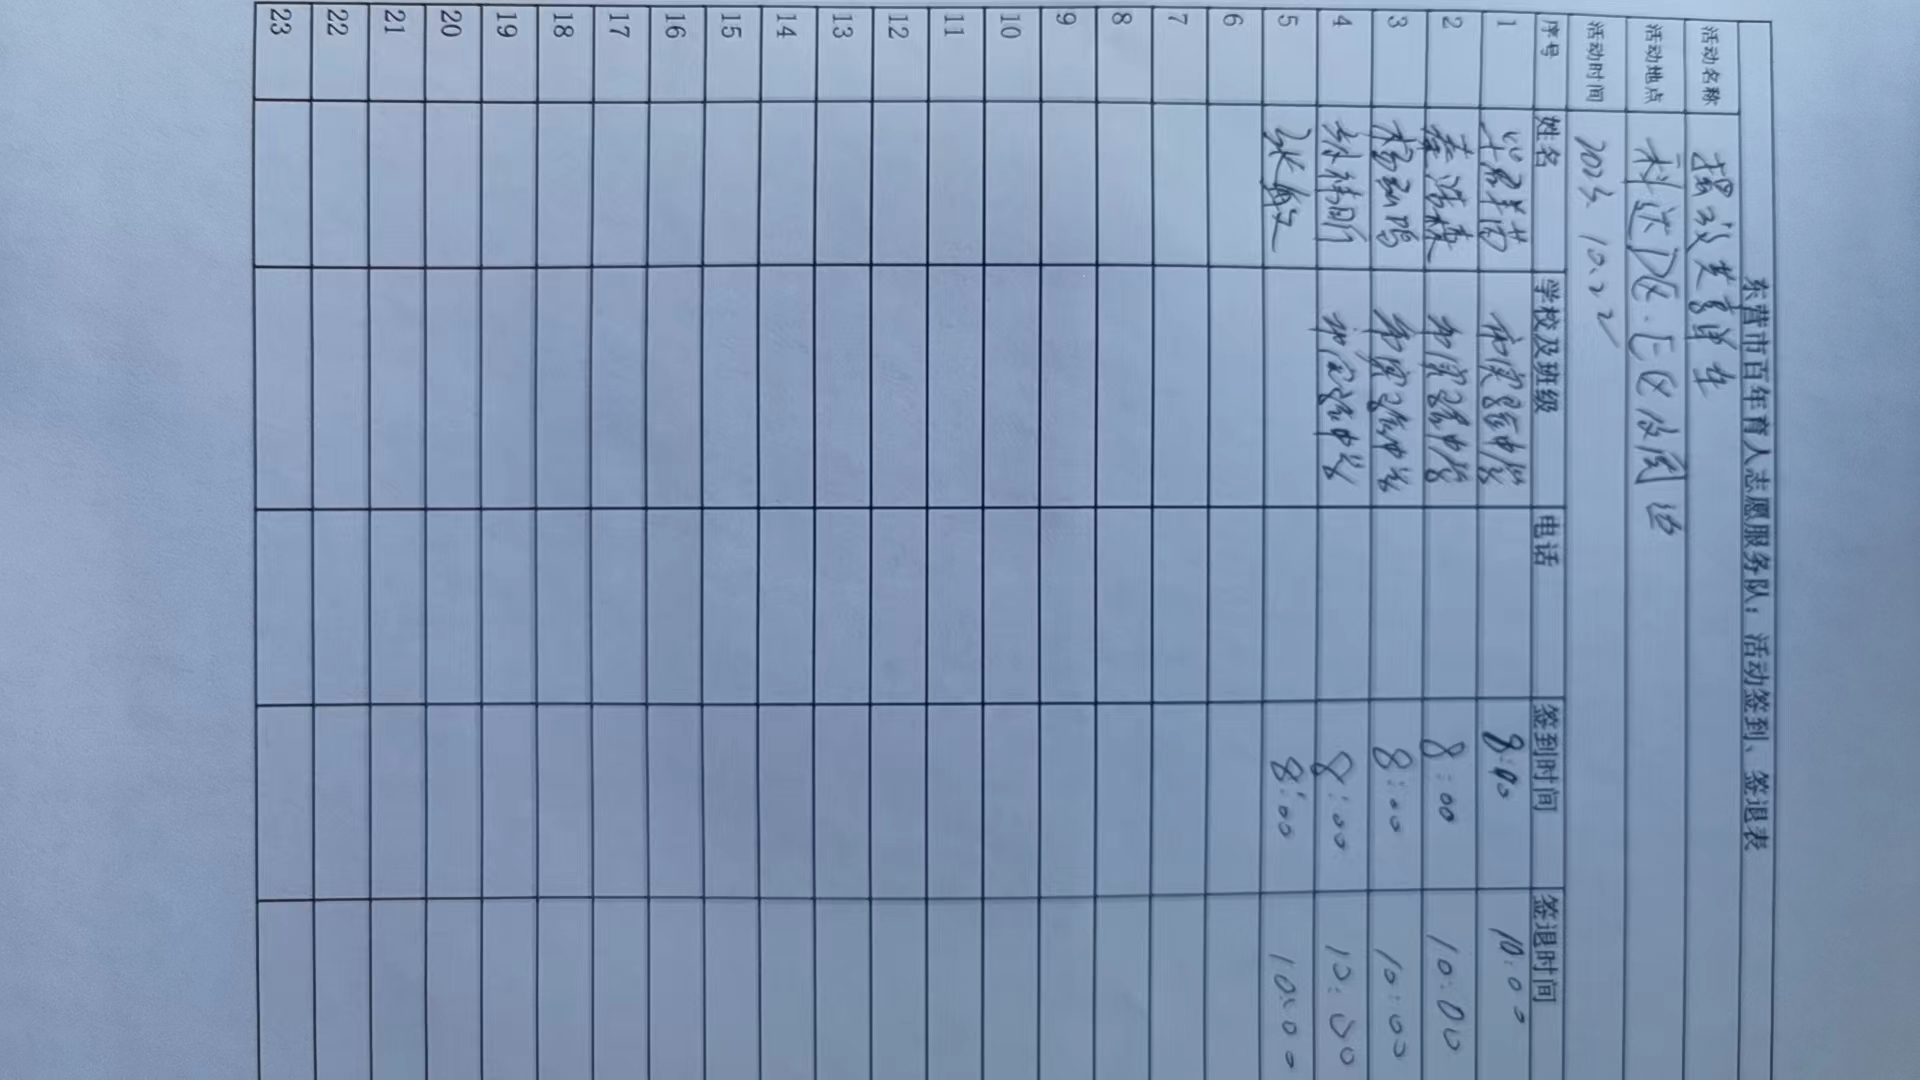 东营市百年育人志愿服务队：活动签到、签退表
活动名称 摆放共享单车
活动地点 科达D区.E区及周边
活动时间 2023. 10.22
序号 姓名 学校及班级 电话 签到时间 签退时间
1 实验中学 8:00 10:00
2 实验中学 8:00 10:00
3 实验中学 8:00 10:00
4 实验中学 8:00 10:00
5 张敏 8:00 10:00
6
7
8
9
10
11
12
13
14
15
16
17
18
19
20
21
22
23